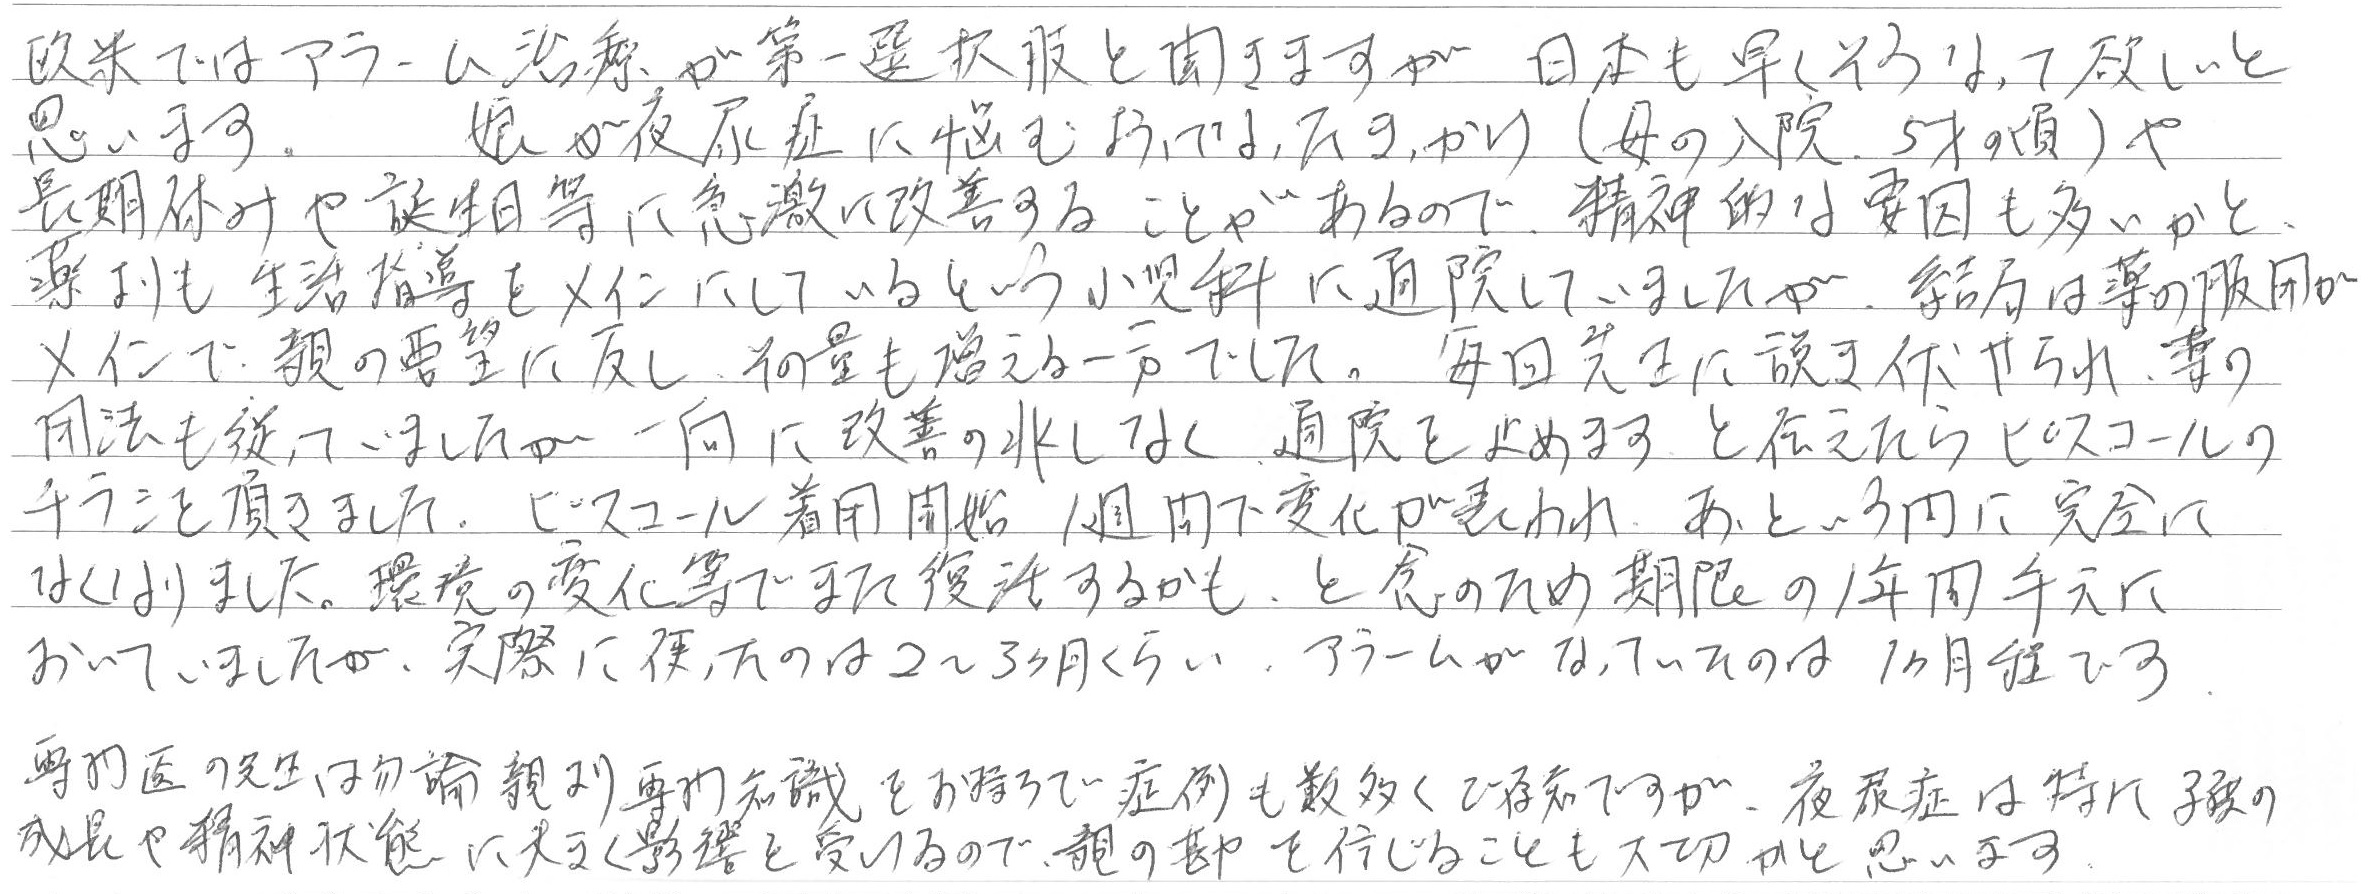 欧米ではアラーム治療が第一選択肢と聞きますが 日本も早くそうなって欲しいと
思います。 娘が夜尿症に悩むようになったきっかけ（母の入院、5才の頃）や
長期休みや誕生日等に急激に改善することがあるので、精神的な要因も多いかと、
薬よりも生活指導をメインにしているという小児科に通院していましたが、結局は薬の服用が
メインで、親の要望に反し、その量も増える一方でした。 毎回先生に説き伏せられ、薬の
用法も従っていましたが 一向に改善の兆しなく、通院を止めます、と伝えたらピスコールの
チラシを頂きました。 ピスコール着用開始 1週間で変化が表われ、あっという間に完全に
なくなりました。環境の変化等でまた復活するかも、と念のため期限の1年間手元に
おいていましたが、実際に使ったのは2〜3ヶ月くらい、アラームがなっていたのは 1ヶ月程です。
専門医の先生は勿論親より専門知識をお持ちで症例も数多くご存知ですが、夜尿症は特に子供の
成長や精神状態に大きく影響を受けるので、親の勘を信じることも大切かと思います。